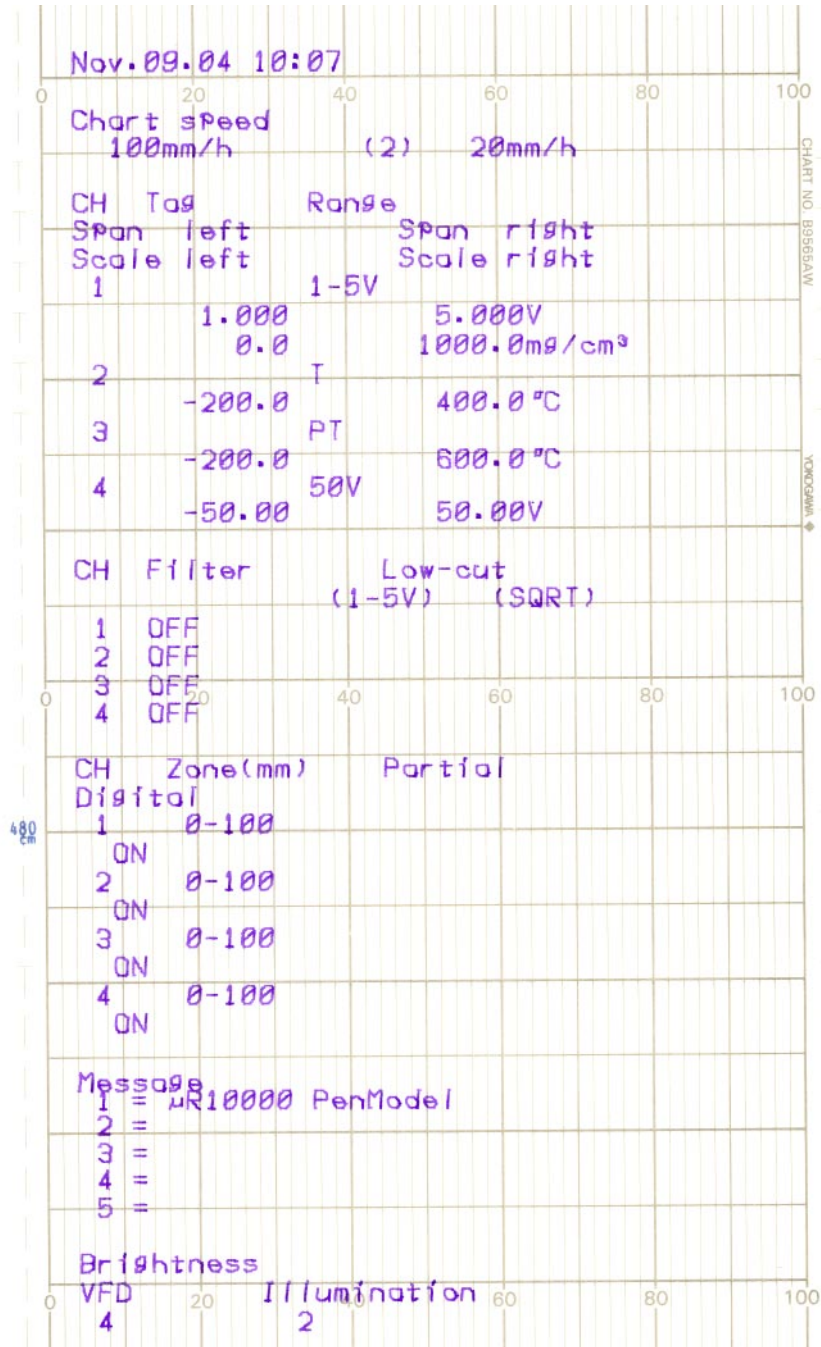 Nov.09.04 10:07
0 20 40 60 80 100
Chart speed
100mm/h (2) 20mm/h
CHART NO. B9565AW
CH Tag Range
Span left Span right
Scale left Scale right
1 1-5V
1.000 5.000V
0.0 1000.0mg/cm³
2 T
-200.0 400.0°C
3 PT
-200.0 600.0°C
YOKOGAWA ◆
4 50V
-50.00 50.00V
CH Filter Low-cut
(1-5V) (SQRT)
1 OFF
2 OFF
3 OFF
0 20 40 60 80 100
4 OFF
CH Zone(mm) Partial
Digital
1 0-100
480
cm
ON
2 0-100
ON
3 0-100
ON
4 0-100
ON
Message
1 = µR10000 PenModel
2 =
3 =
4 =
5 =
Brightness
VFD Illumination
0 20 40 60 80 100
4 2